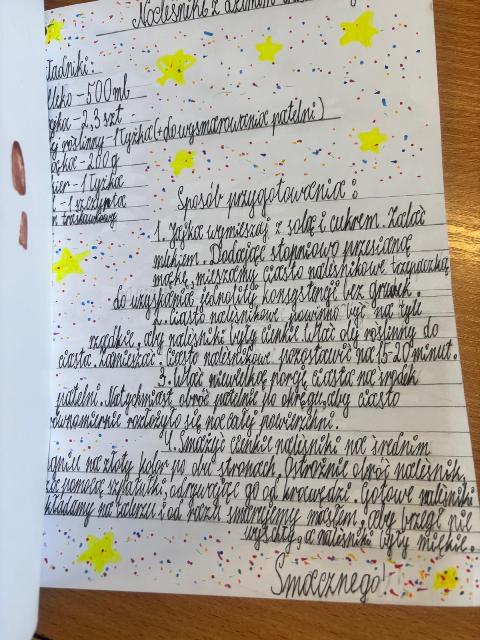 Naleśniki z
ładniki:
leko - 500 ml
jka - 2,3 szt
ej roślinny - 1 łyżka (+ do wysmarowania patelni)
ąka - 200 g
ier - 1 łyżka
l - 1 szczypta
Sposób przygotowania:
1. Jajka wymieszaj z solą i cukrem. Zalać
mlekiem. Dodając stopniowo przesianą
mąkę, mieszamy ciasto naleśnikowe trzepaczką
do uzyskania jednolitej konsystencji bez grudek.
2. Ciasto naleśnikowe powinno być na tyle
rzadkie, aby naleśniki były cienkie. Wlać olej roślinny do
ciasta. Zamieszać i ciasto naleśnikowe pozostawić na 15-20 minut.
3. Wlać niewielką porcję ciasta na środek
patelni. Natychmiast obróć patelnię po okręgu, aby ciasto
równomiernie rozłożyło się na całej powierzchni.
4. Smażyć cienkie naleśniki na średnim
ogniu na złoty kolor po obu stronach. Ostrożnie obróć naleśnik,
za pomocą szpatułki, odrywając go od krawędzi. Gotowe naleśniki
kładamy na talerzu i od razu smarujemy masłem, aby brzegi nie
wyschły, a naleśniki były miękkie.
Smacznego!